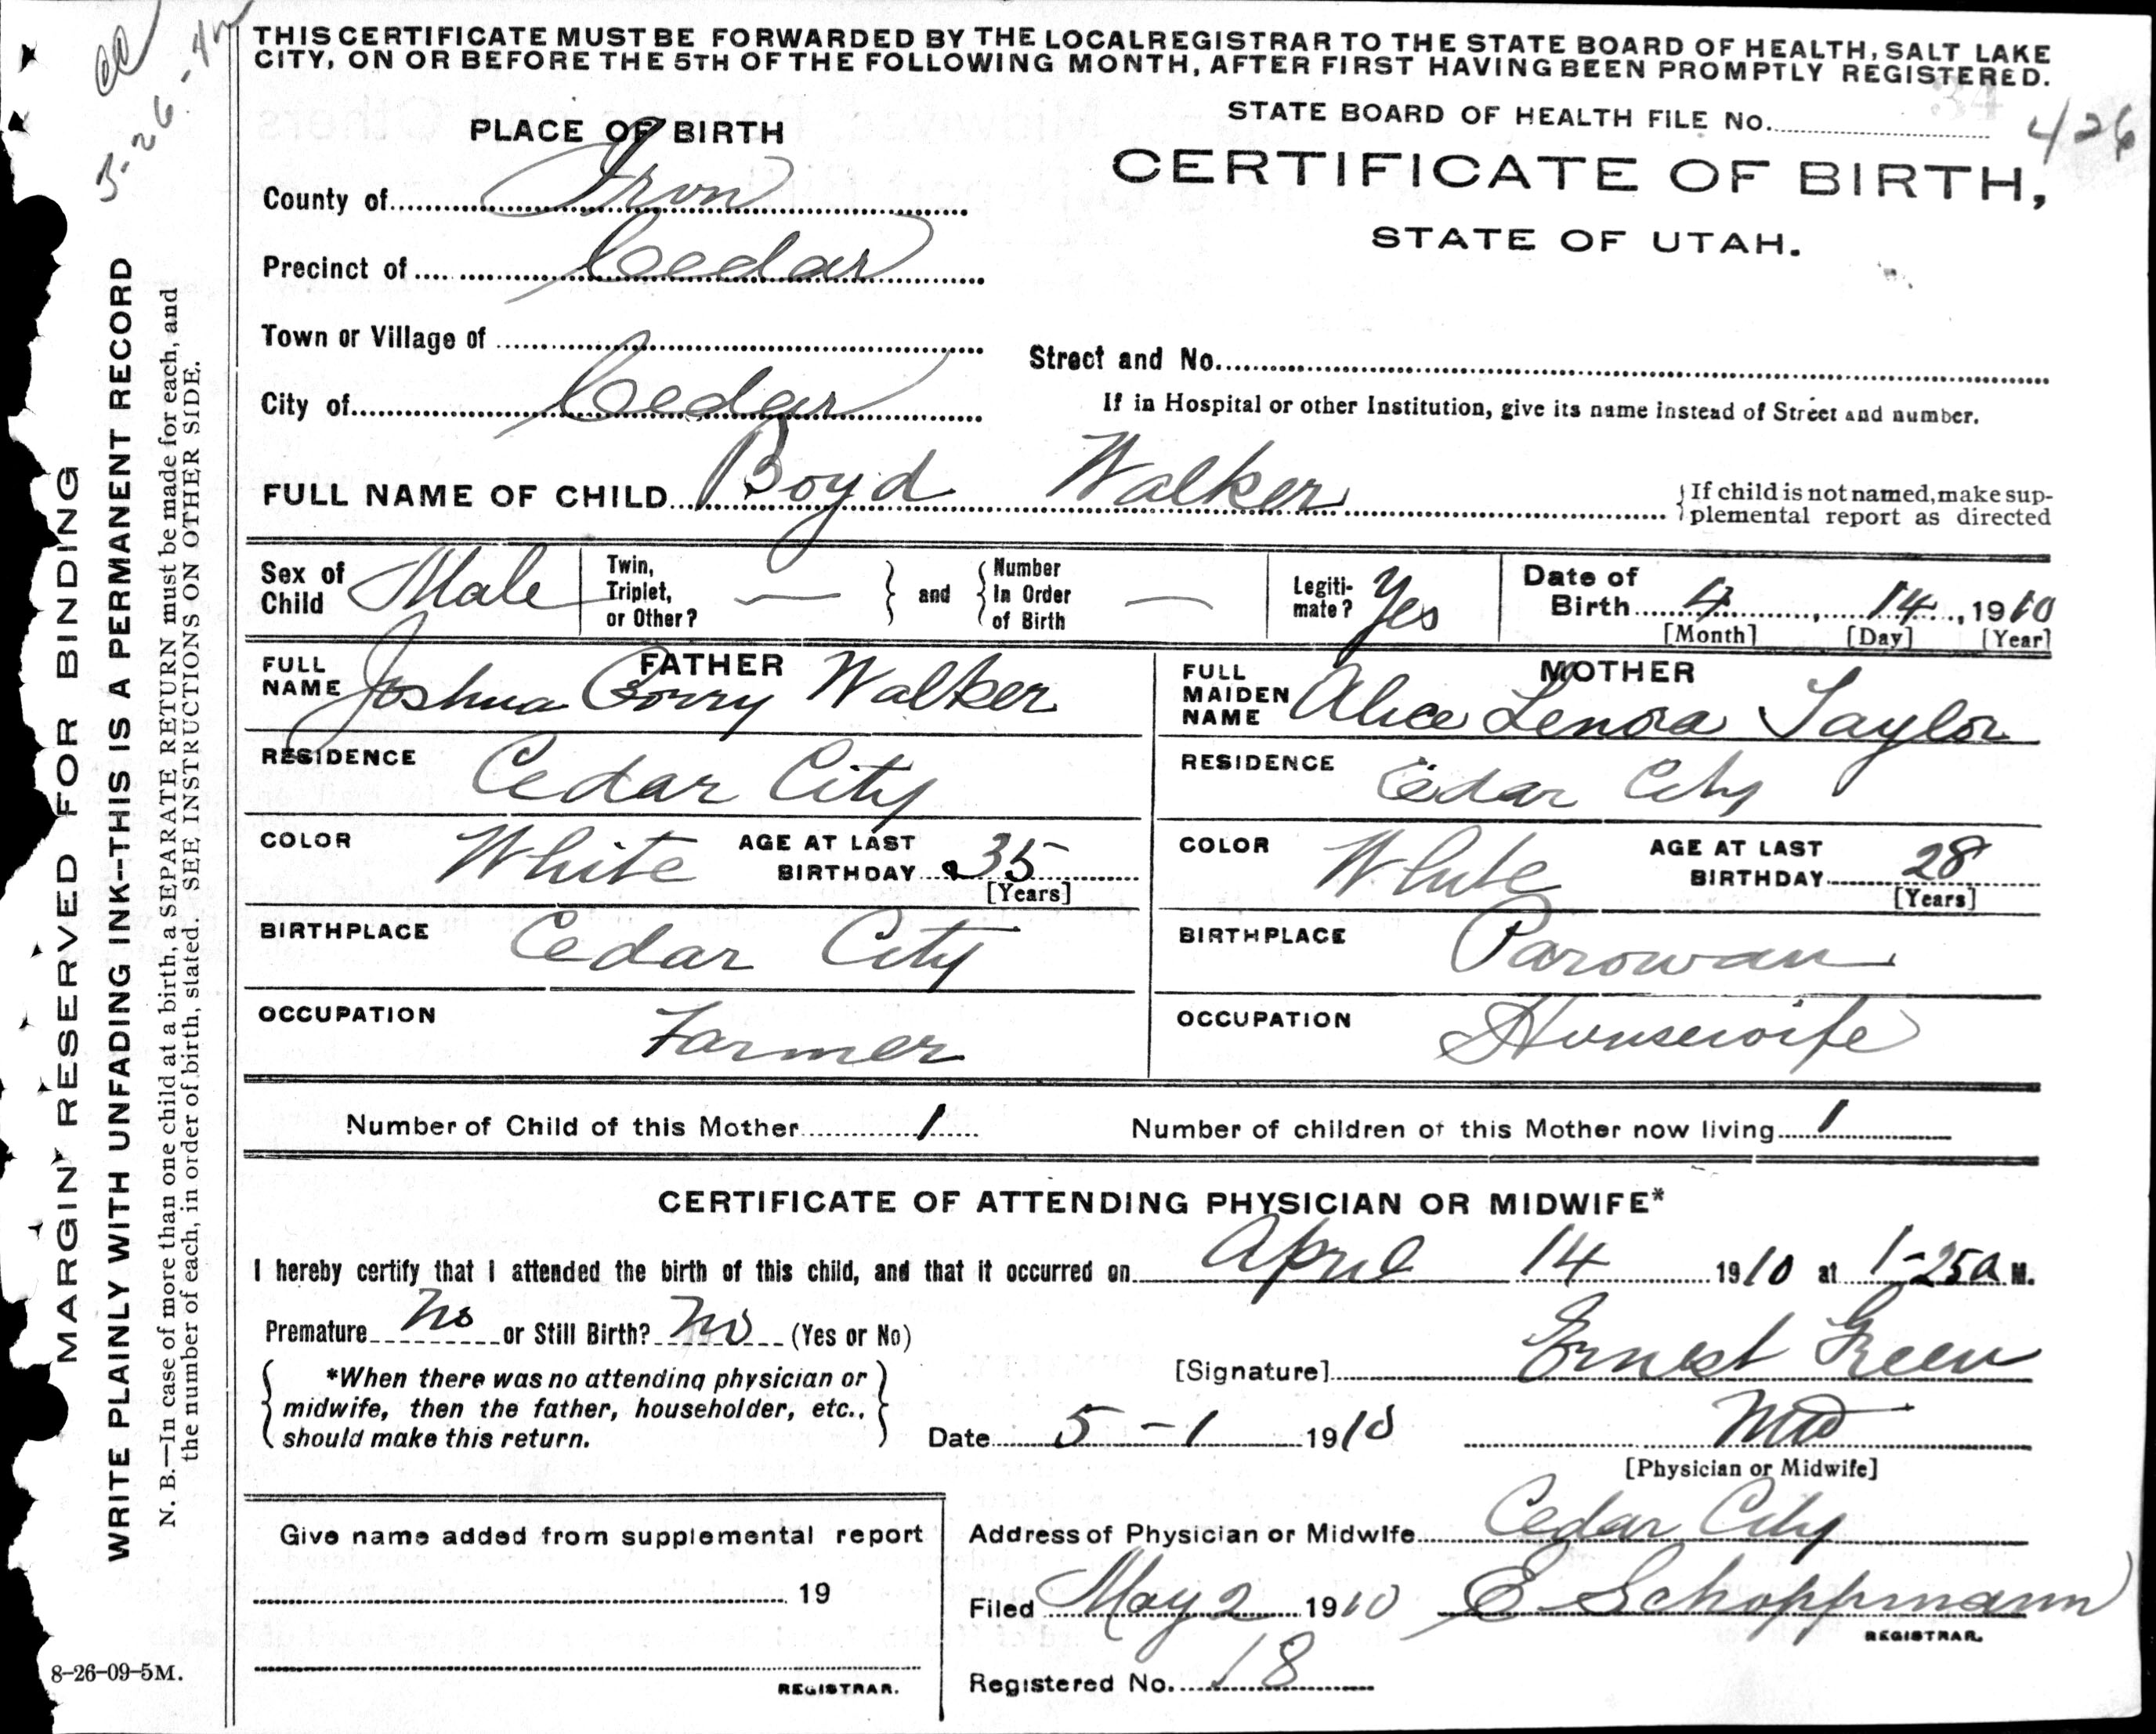 THIS CERTIFICATE MUST BE FORWARDED BY THE LOCAL REGISTRAR TO THE STATE BOARD OF HEALTH, SALT LAKE
CITY, ON OR BEFORE THE 5TH OF THE FOLLOWING MONTH, AFTER FIRST HAVING BEEN PROMPTLY REGISTERED.
STATE BOARD OF HEALTH FILE No. 34 426
PLACE OF BIRTH
CERTIFICATE OF BIRTH,
STATE OF UTAH.
County of Iron
Precinct of Cedar
Town or Village of
Street and No.
City of Cedar
If in Hospital or other Institution, give its name instead of Street and number.
FULL NAME OF CHILD Boyd Walker
{If child is not named, make sup-
plemental report as directed
Sex of Child Male
Twin, Triplet, or Other? — } and { Number In Order of Birth —
Legiti-mate? Yes
Date of Birth 4, 14, 1910
[Month] [Day] [Year]
FATHER
FULL NAME Joshua Corry Walker
RESIDENCE Cedar City
COLOR White AGE AT LAST BIRTHDAY 35
[Years]
BIRTHPLACE Cedar City
OCCUPATION Farmer
MOTHER
FULL MAIDEN NAME Alice Lenora Taylor
RESIDENCE Cedar City
COLOR White AGE AT LAST BIRTHDAY 28
[Years]
BIRTHPLACE Parowan
OCCUPATION Housewife
Number of Child of this Mother 1 Number of children of this Mother now living 1
CERTIFICATE OF ATTENDING PHYSICIAN OR MIDWIFE*
I hereby certify that I attended the birth of this child, and that it occurred on April 14 1910 at 1-25a M.
Premature No or Still Birth? No (Yes or No)
*When there was no attending physician or
midwife, then the father, householder, etc.,
should make this return.
[Signature] Ernest Green
Date 5-1 1910 MD
[Physician or Midwife]
Give name added from supplemental report
19
REGISTRAR.
Address of Physician or Midwife Cedar City
Filed May 2 1910 E Schoppmann
REGISTRAR.
Registered No. 18
8-26-09-5M.
MARGIN RESERVED FOR BINDING
WRITE PLAINLY WITH UNFADING INK--THIS IS A PERMANENT RECORD
N. B.—In case of more than one child at a birth, a SEPARATE RETURN must be made for each, and
the number of each, in order of birth, stated. SEE INSTRUCTIONS ON OTHER SIDE.